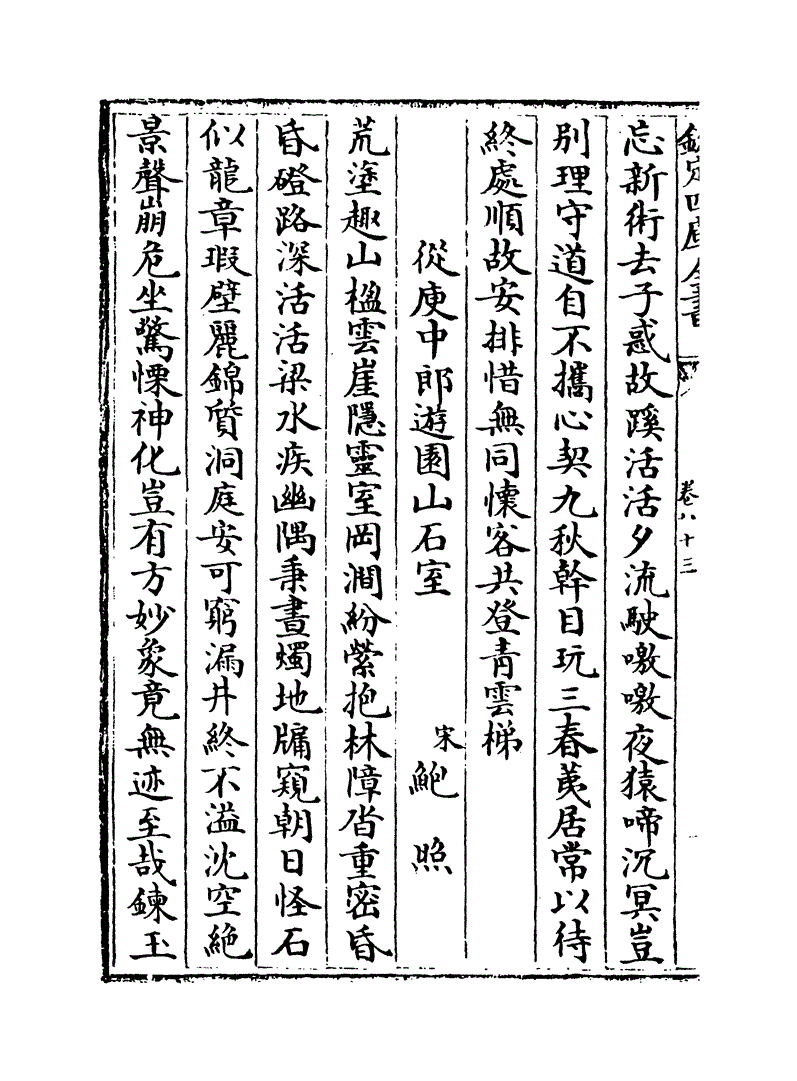 欽定四庫全書 卷八十三
忘新術去子惑故蹊活活夕流駛噭噭夜猿啼沉冥豈
别理守道自不攜心契九秋幹目玩三春荑居常以待
終處順故安排惜無同懷客共登青雲梯
從庾中郎遊園山石室 宋 鮑照
荒塗趣山楹雲崖隱靈室岡澗紛縈抱林障沓重密昏
昏磴路深活活梁水疾幽隅秉晝燭地牖窺朝日怪石
似龍章瑕璧麗錦質洞庭安可窮漏井終不溢沈空絶
景聲崩危坐驚慄神化豈有方妙象竟無迹至哉鍊玉